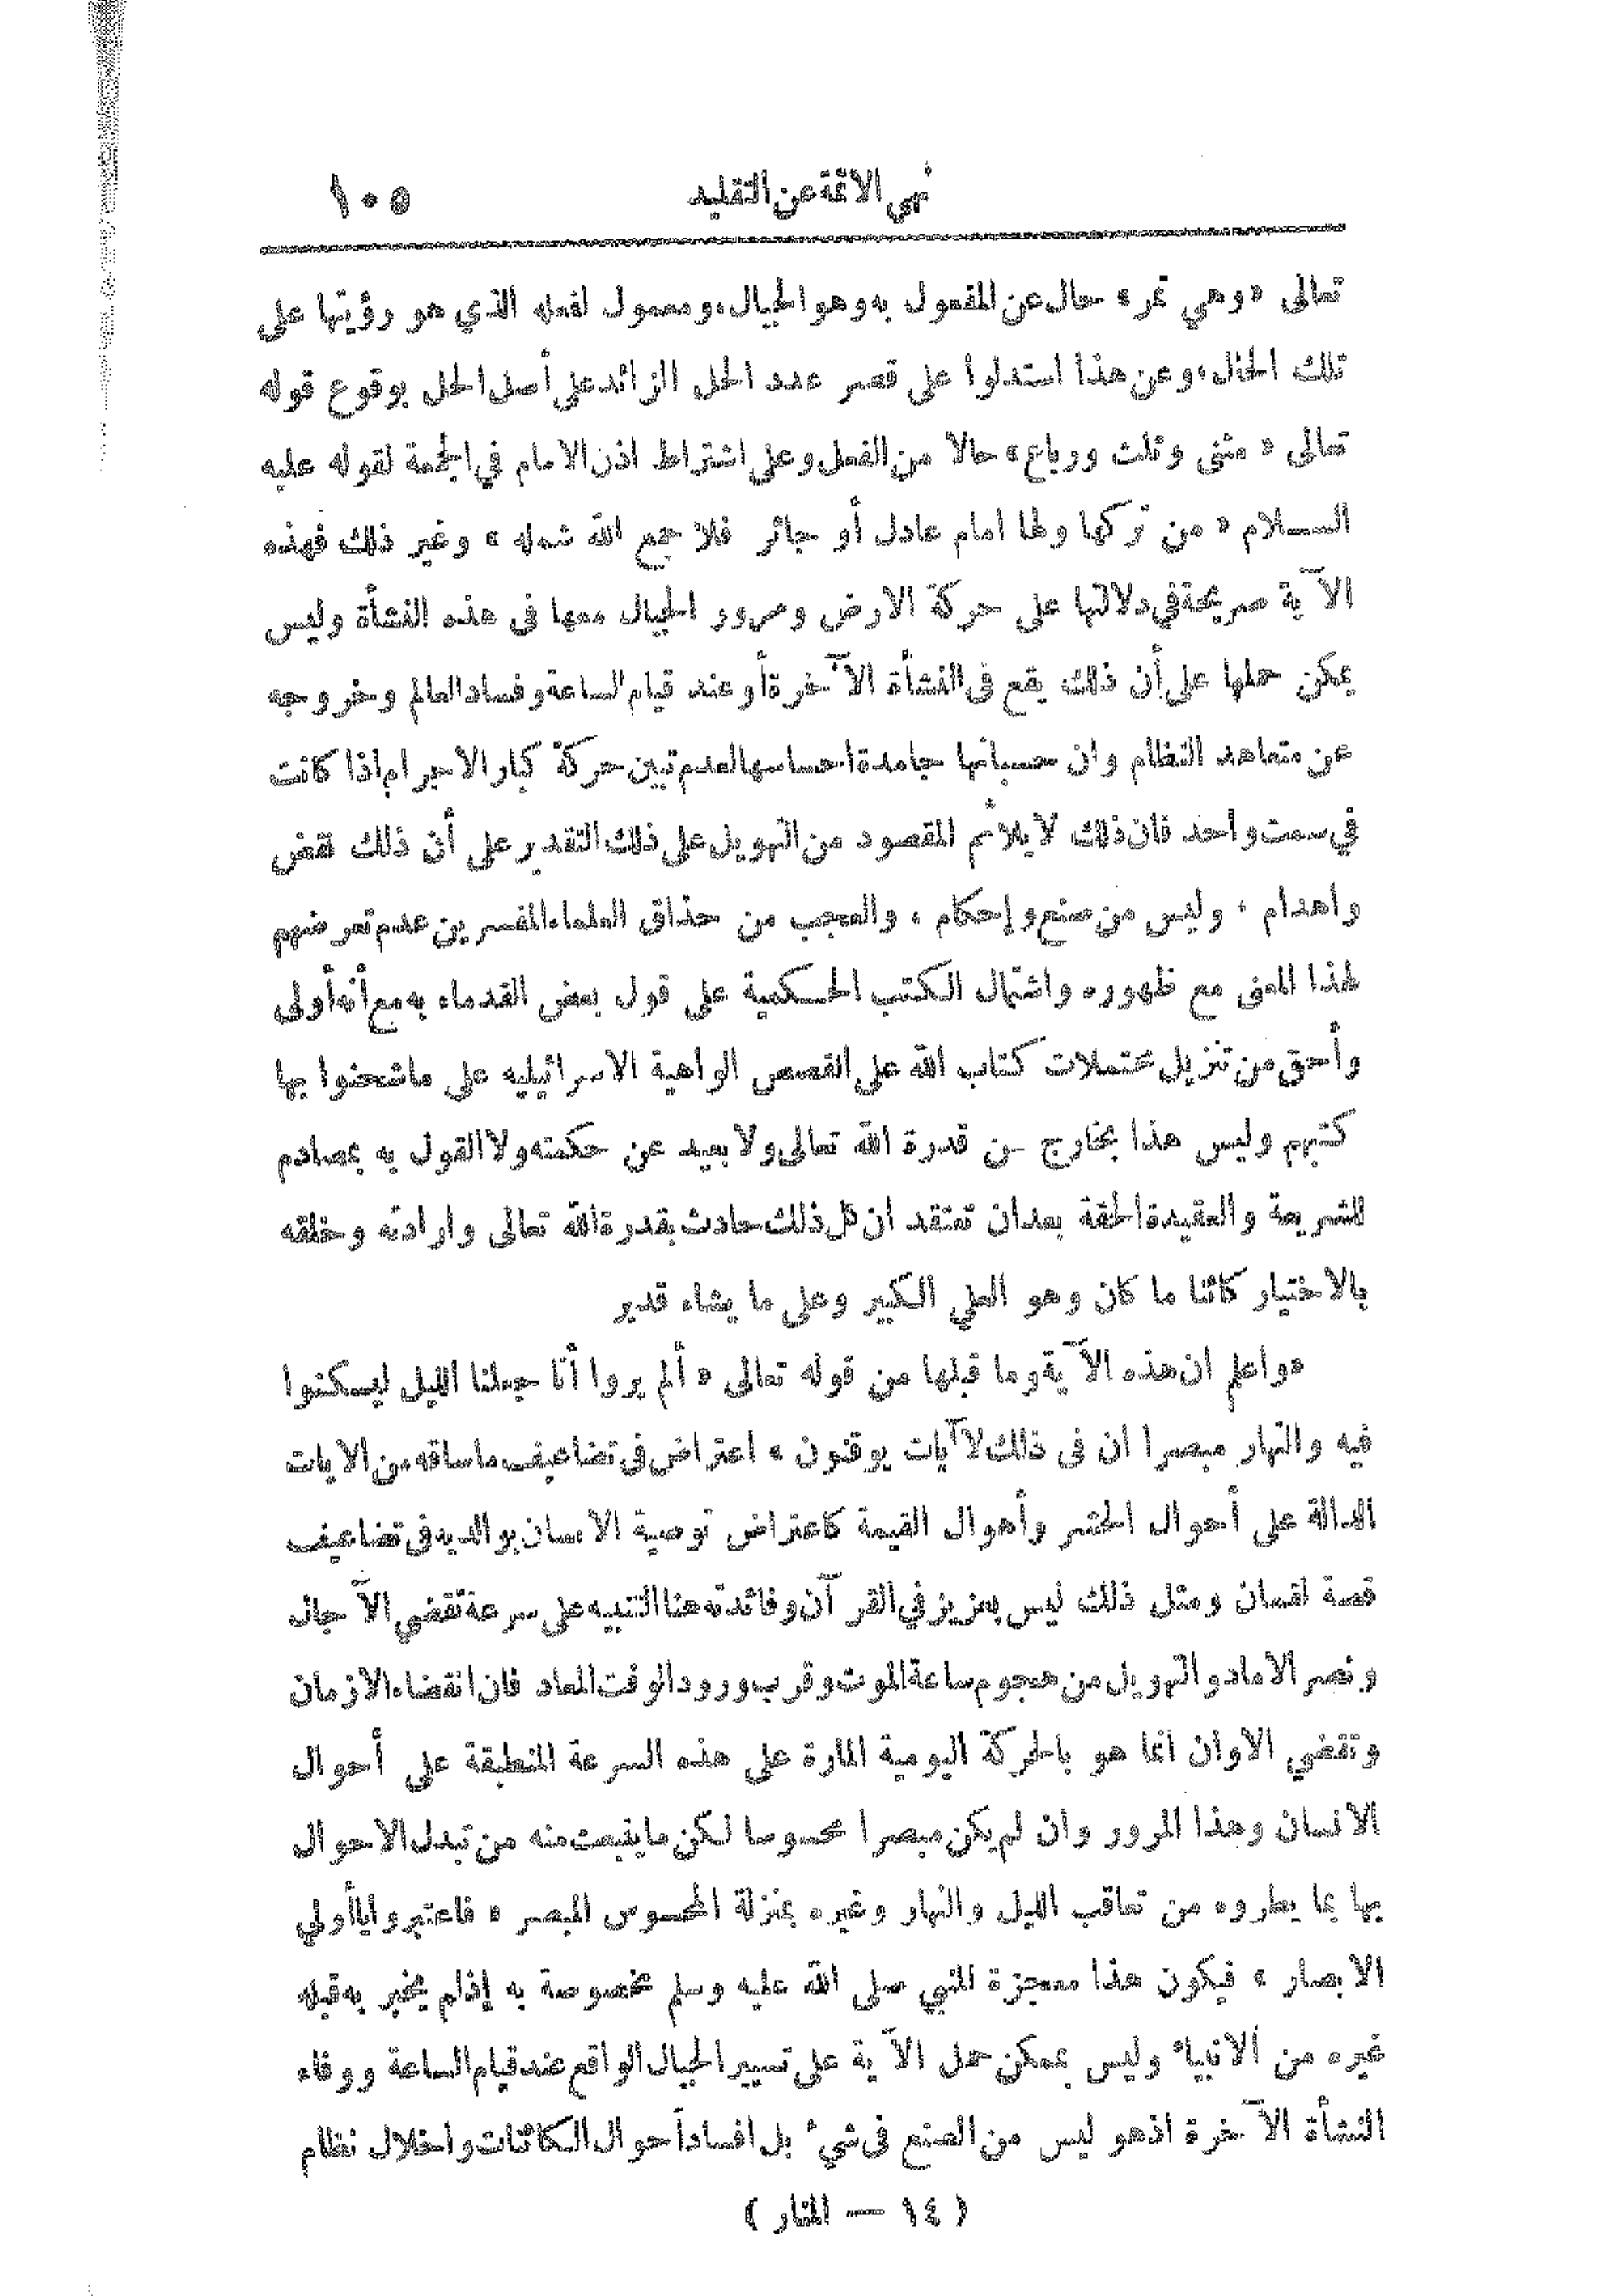 نهي الائمة عن التقليد ١٠٥
تعالى «وهي تمر» حال عن المفعول به وهو الجبال، ومعمول لفعله الذي هو رؤيتها على
تلك الحال، وعن هذا استدلوا على قصر عدد الحل الزائد على أصل الحل بوقوع قوله
تعالى « مثنى وثلث ورباع» حالا من الفعل وعلى اشتراط اذن الامام في الجمعة لقوله عليه
السلام « من تركها ولها امام عادل أو جائر فلا جمع الله شمله » وغير ذلك فهذه
الآية صريحة في دلالتها على حركة الارض ومرور الجبال معها فى هذه النشأة وليس
يمكن حملها على أن ذلك يقع فى النشأة الآخرة أو عند قيام الساعة وفساد العالم وخروجه
عن متعاهد النظام وان حسبانها جامدة احساسها لعدم تبين حركة كبار الاجرام اذا كانت
في سمت واحد فان ذلك لا يلائم المقصود من التهويل على ذلك التقدير على أن ذلك نقض
واهدام ، وليس من صنع وإحكام ، والعجب من حذاق العلماء المفسرين عدم تعرضهم
لهذا المعنى مع ظهوره واشتمال الكتب الحكمية على قول بعض القدماء به مع أنه أولى
وأحق من تنزيل محتملات كتاب الله على القصص الواهية الاسرائيليه على ما شحنوا بها
كتبهم وليس هذا بخارج عن قدرة الله تعالى ولا بعيد عن حكمته ولا القول به بمصادم
للشريعة والعقيدة الحقة بعد ان تعتقد ان كل ذلك حادث بقدرة الله تعالى وارادته وخلقه
بالاختيار كائنا ما كان وهو العلي الكبير وعلى ما يشاء قدير
«واعلم ان هذه الآية وما قبلها من قوله تعالى « ألم يروا أنّا جعلنا الليل ليسكنوا
فيه والنهار مبصرا ان فى ذلك لآيات يوقنون » اعتراض في تضاعيف ما ساقه من الايات
الدالة على أحوال الحشر وأهوال القيمة كاعتراض توصية الانسان بوالديه فى تضاعيف
قصة لقمان ومثل ذلك ليس بعزيز في القرآن وفائدته هنا التنبيه على سرعة تقضي الآجال
وتصر الاماد والتهويل من هجوم ساعة الموت وقرب ورود الوقت المعاد فان انقضاء الازمان
وتقضي الاوان انما هو بالحركة اليومية المارة على هذه السرعة المنطبقة على أحوال
الانسان وهذا المرور وان لم يكن مبصرا محسوسا لكن ما ينبعث منه من تبدل الاحوال
بها بما يطروه من تعاقب الليل والنهار وغيره بمنزلة المحسوس المبصر « فاعتبروا ياأولي
الابصار » فيكون هذا معجزة للنبي صلى الله عليه وسلم مخصوصة به إذ لم يخبر به قبله
غيره من الانبياء وليس بممكن حمل الآية على تسيير الجبال الواقع عند قيام الساعة ووفاء
النشأة الآخرة اذ هو ليس من الصنع فى شيء بل افساد أحوال الكائنات واخلال نظام
(١٤ — المنار)